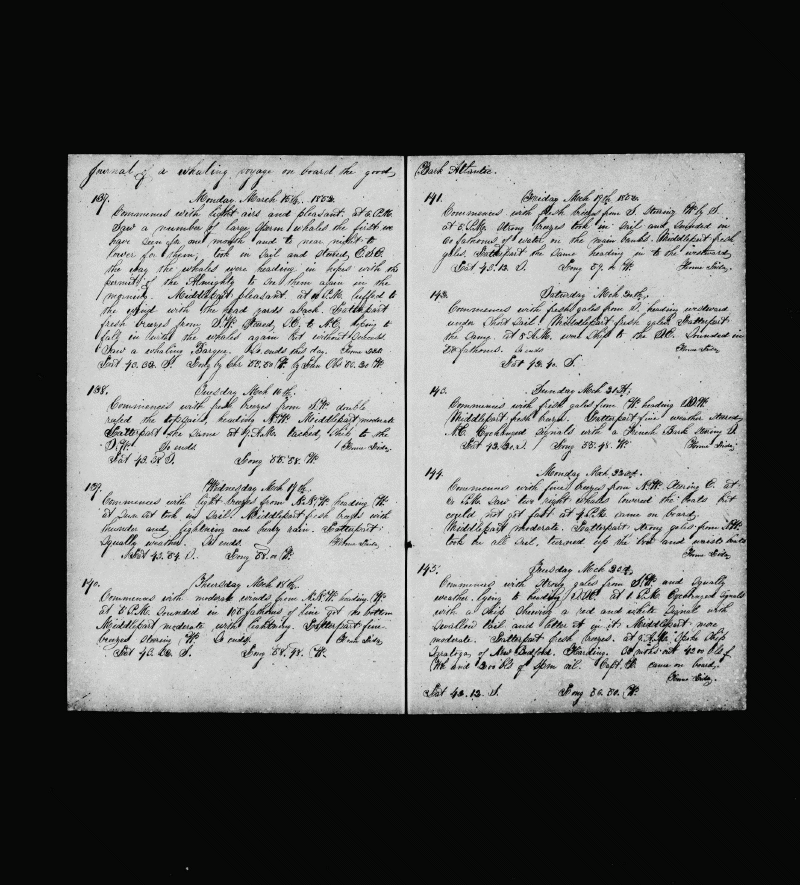 Journal of a whaling voyage on board the good
137. Monday March 15th, 1852
Commences with light airs and pleasant. at 5 P.M.
Saw a number of large Sperm whales the first we
have seen for one month and to near night to
lower for them, took in Sail and steered,
the way the whales were heading in hopes with the
permit of the Almighty to see them again in the
morning. Middlepart pleasant. at P.M. luffed to
the Wind with the head yards aback. Latterpart
fresh breezes from S.W. Steered, to hoping to
fall in with the whales again but without
Saw a whaling Barque. So ends this day.
Lat S. Long by W.
138. Tuesday Mch 16th.
Commences with fresh breezes from S.W. double
reefed the topsails, heading N.W. Middlepart moderate
Latterpart the Same at A.M. tacked Ship to the
S.W. So ends.
Lat 43.38 S. Long 55.58. W.
139. Wednesday Mch 17th.
Commences with light breezes from N.N.W. heading W.
at Sun set took in Sail. Middlepart fresh breezes with
thunder and lightning and heavy rain. Latterpart
Squally weather. So ends.
Lat 43.54 S. Long
140. Thursday Mch 18th.
Commences with moderate winds from N.N.W. heading W.
at 5 P.M. Sounded in fathoms of line got the bottom
Middlepart moderate with lightning. Latterpart fine
breezes steering W. So ends.
Lat S. Long 58.48. W.
Bark Atlantic.
141. Friday Mch 19th, 1852
Commences with fresh breezes from S. steering W by S.
at 5 P.M. Strong breezes took in Sail and Sounded in
60 fathoms of water on the main banks. Middlepart fresh
gales. Latterpart the Same heading in to the westward
Lat 43.12 S. Long 59. W.
142. Saturday Mch 20th.
Commences with fresh gales from S. heading westward
under Short Sail. Middlepart fresh gales. Latterpart
the Same. at A.M. wore Ship to the Sounded in
fathoms. So ends
Lat 42.40 S.
143. Sunday Mch 21st.
Commences with fresh gales from W. heading
Middlepart fresh breezes. Latterpart fine weather steering
Exchanged Signals with a French Bark steering
Lat 42.30 S. Long 55.48. W.
144. Monday Mch 22nd.
Commences with fine breezes from N.W. Steering at
P.M. Saw two right whales lowered the boats but
could not get fast at P.M. came on board
Middlepart moderate. Latterpart Strong gales from
took in all Sail, turned up the bow and waist boats
145. Tuesday Mch 23rd.
Commences with Strong gales from S.W. and Squally
weather. lying to heading at P.M. Exchanged Signals
with a Ship Showing a red and white Signal with
Swallow tail and letter in it. Middlepart more
moderate. Latterpart fresh breezes. at A.M. Spoke Ship
Saratoga, of New Bedford. Harding. mohs out 4200 bls of
Wh and 200 bls of Sperm oil. Capt. H. came on board.
Lat 42.12 S. Long 56.50. W.